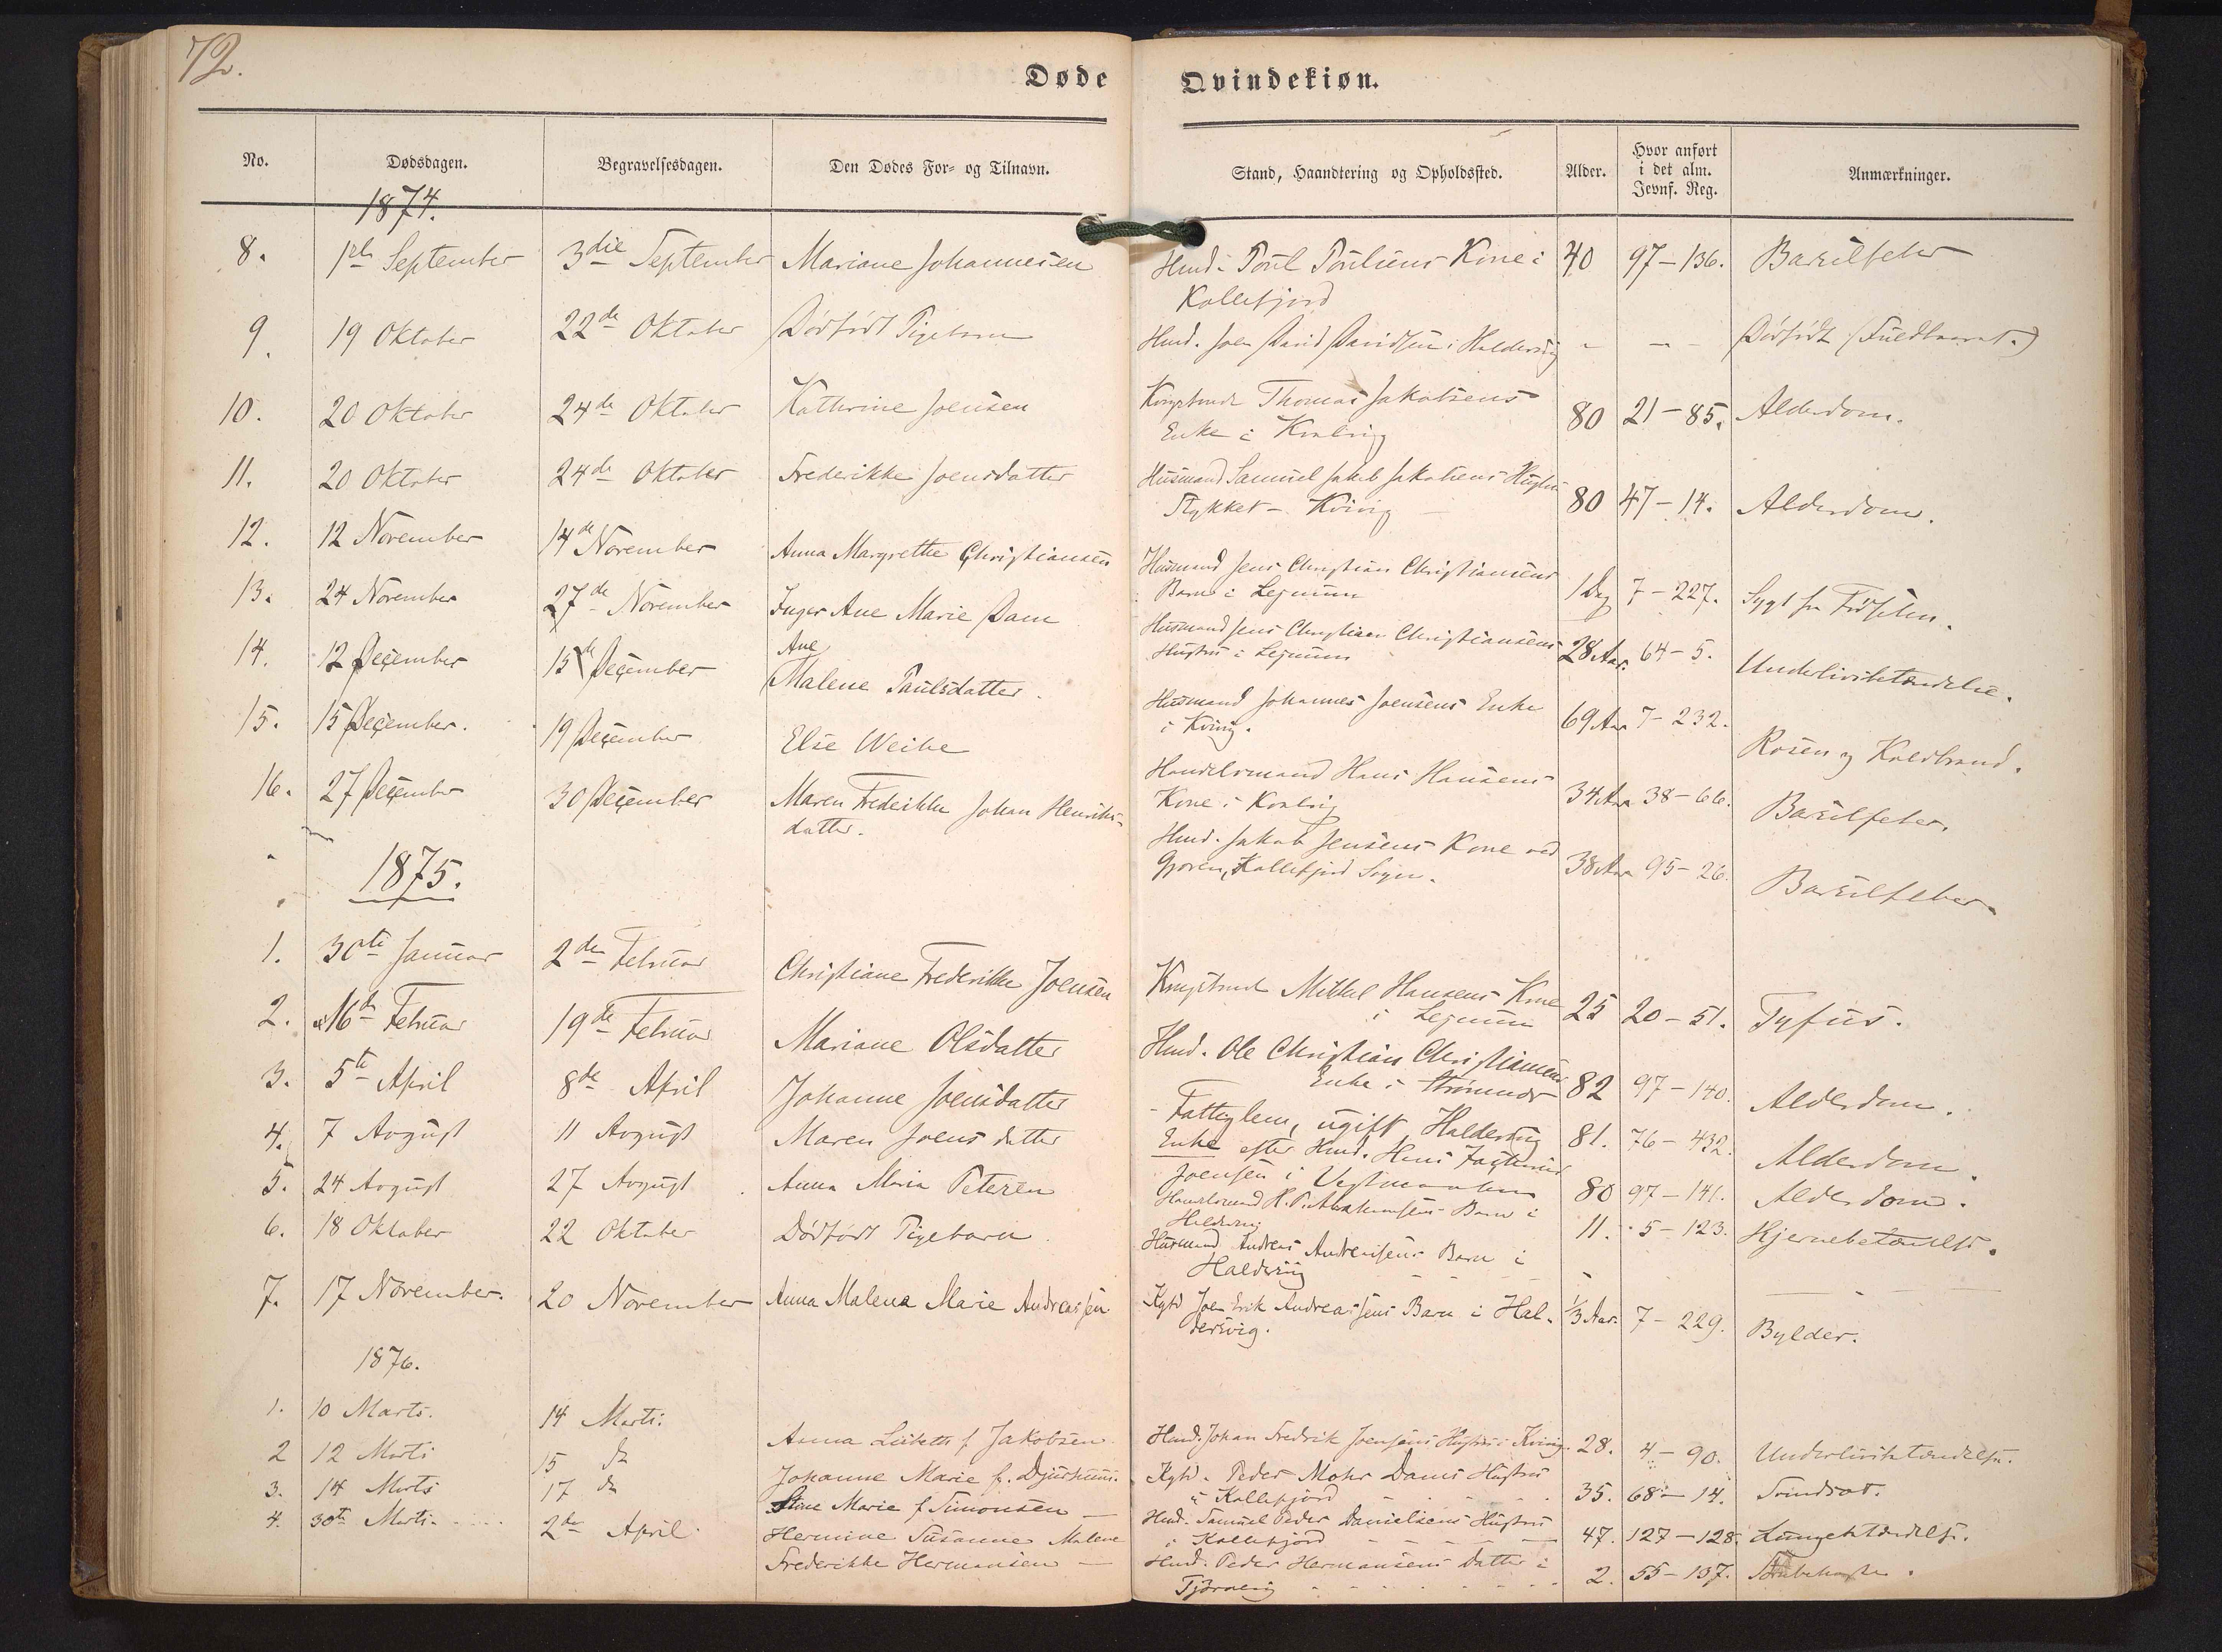 72.
Døde Qvindekiøn.
No. Dødsdagen. Begravelsesdagen. Den Dødes For- og Tilnavn. Stand, Haandtering og Opholdssted. Alder. Hvor anført i det alm. Jevnf. Reg. Anmærkninger.
1874.
8. 1ste September 3die September Mariane Johannesen Hmd. Poul Poulsens Kone i 40 97-136. Barselfeber
Kollefjord
9. 19 Oktober 22de Oktober Dødfødt Pigebarn Hmd. Joen David Davidsen i Haldersvig - - - Dødfødt (Fuldbaaret.)
10. 20 Oktober 24de Oktober Kathrine Joensen Kongsbonde Thomas Jakobsens 80 21-85. Alderdom.
Enke i Kvalvig
11. 20 Oktober 24de Oktober Frederikke Joensdatter Husmand Samuel Jakob Jakobsens Hustru 80 47-14. Alderdom.
Stykket - Kvivig -
12. 12 November 14de November Anna Margrethe Christiansen Husmand Jens Christian Christiansens 1 Dag 7-227. Sygt fra Fødselen.
Barn i Lejnum
13. 24 November 27de November Inger Ane Marie Dam Husmand Jens Christian Christiansens 28 Aar. 64-5. Underlivsbetændelse.
Hustru i Lejnum
14. 12 December 15de December Ane
Malene Paulsdatter. Husmand Johannes Joensens Enke 69 Aar 7-232. Rosen og Koldbrand.
i Kvivig.
15. 15 December. 19 December Else Weihe Handelsmand Hans Hansens 34 Aar 38-66. Barselfeber.
Kone i Kvalvig
16. 27 December 30 December Maren Frederikke Johan Henriks- Hmd. Jakob Jensens Kone ved 38 Aar 95-26. Barselfeber.
datter. Kollefjord Sogn.
1875.
1. 30te Januar 2den Februar Christiane Frederikke Joensen Kongsbonde Mikkel Hansens Kone 25 20-51. Tyfus.
i Lejnum
2. 16de Februar 19de Februar Mariane Olsdatter Hmd. Ole Christian Christiansens 82 97-140. Alderdom.
Enke i Strømnæs
3. 5te April 8de April Johanne Joensdatter Fattiglem, ugift, Haldersvig 81. 76-432. Alderdom.
4. 7 Avgust 11 Avgust Maren Joensdatter Enke efter Hmd. Hans 80 97-141. Alderdom.
Joensen i Vestmanhavn
5. 24 Avgust 27 Avgust Anna Maria Petersen Handelsmand H. P. Barn i 11. 5-123. Hjernebetændelse.
Haldersvig
6. 18 Oktober 22 Oktober Dødfødt Pigebarn Husmand Andreas Andreasens Barn i - - -
Haldersvig
7. 17 November. 20 November Anna Malena Marie Andreassen Kgbd Joen Erik Andreassens Barn i Hal- 1/3 Aar. 7-229. Bylder.
dersvig.
1876.
1. 10 Marts. 14 Marts. Anna Lisbeth f. Jakobsen Hmd. Johan Fredrik Joensens Hustru i Kvivig. 28. 4-90. Underlivsbetændelse.
2 12 Marts 15 do Johanne Marie f. Djurhuus. Kgbd. Peder Mohr Dams Hustru 35. 68-14. Svindsot.
i Kollefjord
3. 14 Marts 17 do Stine Marie f Simonsen - Hmd. Samuel Peder Danielsens Hustru 47. 127-128. Lungebetændelse.
i Kollefjord
4. 30te Marts. 2den April Hermine Susanne Malene
Frederikke Hermansen - Hmd. Peder Hermansens Datter i 2. 55-137. Strubehoste.
Tjørnevig